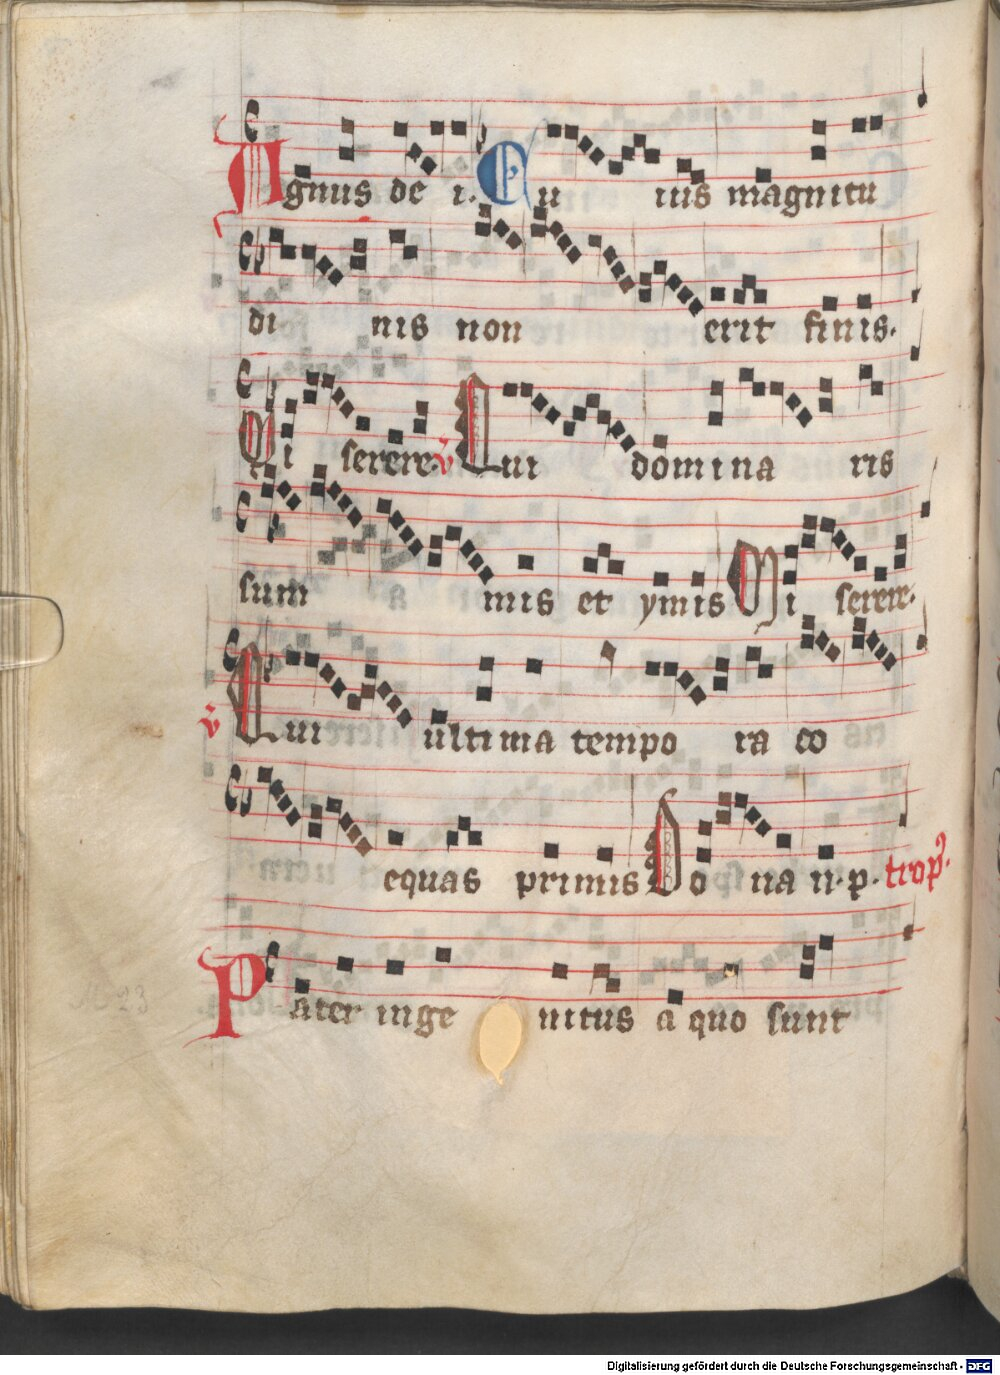 Agnus de i. Cu ius magnitu
di nis non erit finis.
Mi serere. v Qui domina ris
sum mis et ymis Mi serere.
v Qui ultima tempo ra co
equas primis Do na n. p. trop9.
Pater inge nitus a quo sunt
23
Digitalisierung gefördert durch die Deutsche Forschungsgemeinschaft - DFG